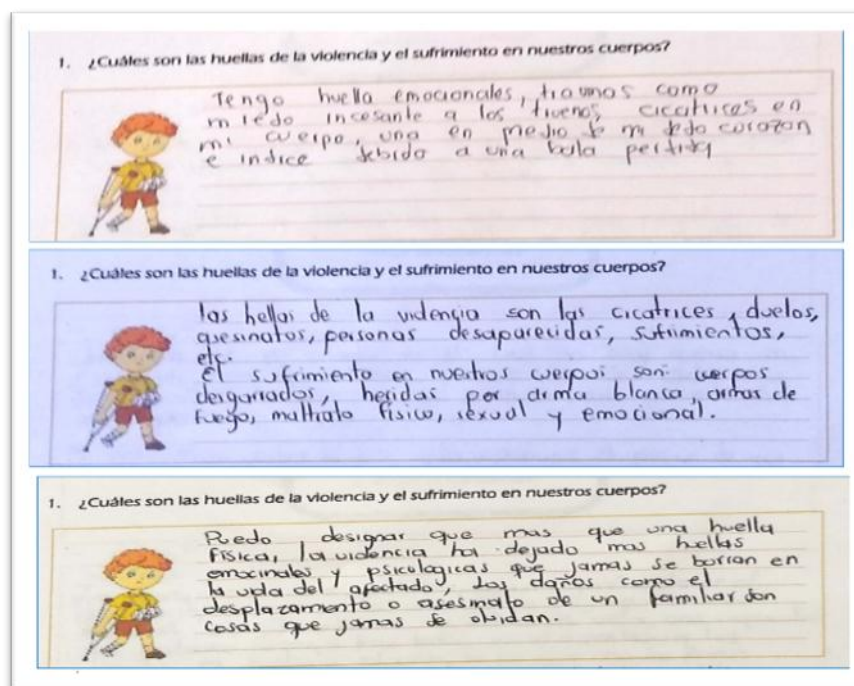 1. ¿Cuáles son las huellas de la violencia y el sufrimiento en nuestros cuerpos?
Tengo huella emocionales, traumas como
miedo incesante a los truenos, cicatrices en
mi cuerpo, una en medio de mi dedo corazon
e indice debido a una bala perdida
1. ¿Cuáles son las huellas de la violencia y el sufrimiento en nuestros cuerpos?
las hellas de la videncia son las cicatrices, duelos,
asesinatos, personas desaparecidas, sufrimientos,
etc.
el sufrimiento en nuestros cuerpos son: cuerpos
desgarrados, heridas por arma blanca, armas de
fuego, maltrato fisico, sexual y emocional.
1. ¿Cuáles son las huellas de la violencia y el sufrimiento en nuestros cuerpos?
Puedo designar que mas que una huella
física, la videncia ha dejado mas hellas
emocinales y psicologicas que jamas se borran en
la vida del afectado, Los daños como el
desplazamiento o asesinato de un familiar son
cosas que jamas se olvidan.